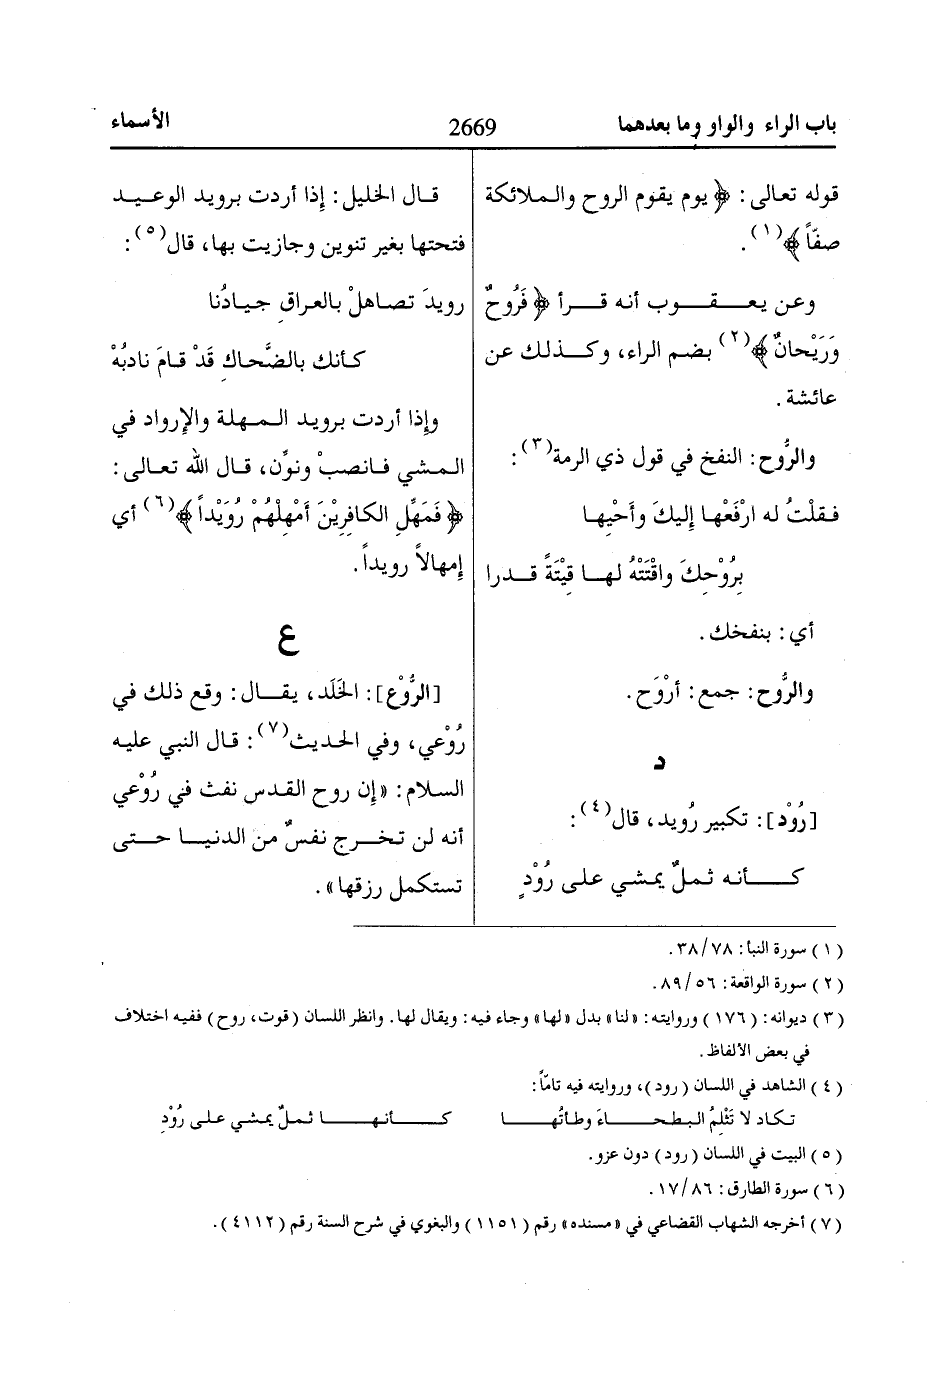 باب الراء والواو وما بعدهما
2669
الأسماء
قوله تعالى: ﴿ يوم يقوم الروح والملائكة
صفّاً ﴾(١).
وعن يعقوب أنه قرأ ﴿ فَرُوحٌ
وَرَيْحانٌ ﴾(٢) بضم الراء، وكذلك عن
عائشة.
والرُّوح: النفخ في قول ذي الرمة(٣):
فقلتُ له ارْفَعْها إليكَ وأَحْيِها
بِرُوْحِكَ واقْتَتْهُ لها قِيْتَةً قدرا
أي: بنفخك.
والرُّوح: جمع: أرْوَح.
د
[رُوْد]: تكبير رُويد، قال(٤):
كأنه ثملٌ يمشي على رُوْدِ
قال الخليل: إذا أردت برويد الوعيد
فتحتها بغير تنوين وجازيت بها، قال(٥):
رويدَ تصاهلْ بالعراقِ جيادُنا
كأنك بالضَّحاك قَدْ قامَ نادِبُهْ
وإذا أردت برويد المهلة والإرواد في
المشي فانصبْ ونوِّن، قال الله تعالى:
﴿ فَمَهِّلِ الكافِرِيْنَ أَمْهِلْهُمْ رُوَيْداً ﴾(٦) أي
إمهالاً رويداً.
ع
[الرُّوْع]: الخَلَد، يقال: وقع ذلك في
رُوْعي، وفي الحديث(٧): قال النبي عليه
السلام: «إن روح القدس نفث في رُوْعي
أنه لن تخرج نفسٌ من الدنيا حتى
تستكمل رزقها».
(١) سورة النبأ: ٣٨/٧٨.
(٢) سورة الواقعة: ٨٩/٥٦.
(٣) ديوانه: (١٧٦) وروايته: «لنا» بدل «لها» وجاء فيه: ويقال لها. وانظر اللسان (قوت، روح) ففيه اختلاف
في بعض الألفاظ.
(٤) الشاهد في اللسان (رود)، وروايته فيه تامّاً:
تكاد لا تَثْلِمُ البطحاءَ وطأتُها كأنها ثملٌ يمشي على رُوْدِ
(٥) البيت في اللسان (رود) دون عزو.
(٦) سورة الطارق: ١٧/٨٦.
(٧) أخرجه الشهاب القضاعي في «مسنده» رقم (١١٥١) والبغوي في شرح السنة رقم (٤١١٢).